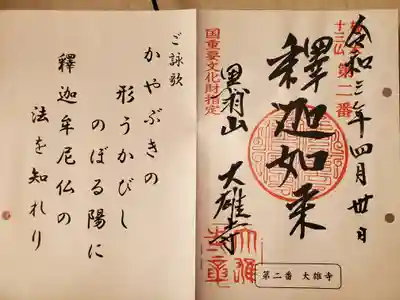 令和三年四月卅日
十三仏
第二番
釋迦如来
黒羽山 大雄寺
国重要文化財指定
第二番 大雄寺
ご詠歌
かやぶきの
形うかびし
のぼる陽に
釋迦牟尼仏の
法を知れり